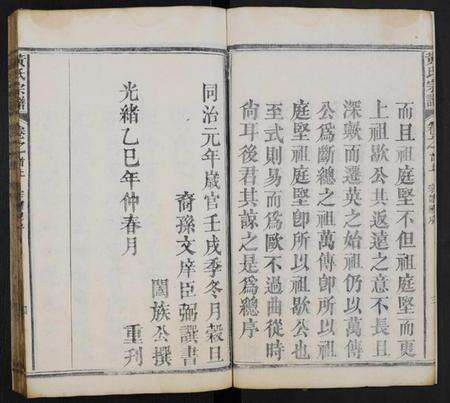 黃氏宗譜
而且祖庭堅不但祖庭堅而更
上祖歇公其返遠之意不長且
深歟而遷英之始祖仍以萬傳
公爲斷總之祖萬傳卽所以祖
庭堅祖庭堅卽所以祖歇公也
至式則易而爲歐不過曲從時
尙耳後君其諒之是爲總序
同治元年歲官壬戌季冬月穀旦
裔孫文庠臣弼謹書
闔族公撰
光緒乙巳年仲春月
重刊
黃氏宗譜
卷之首上